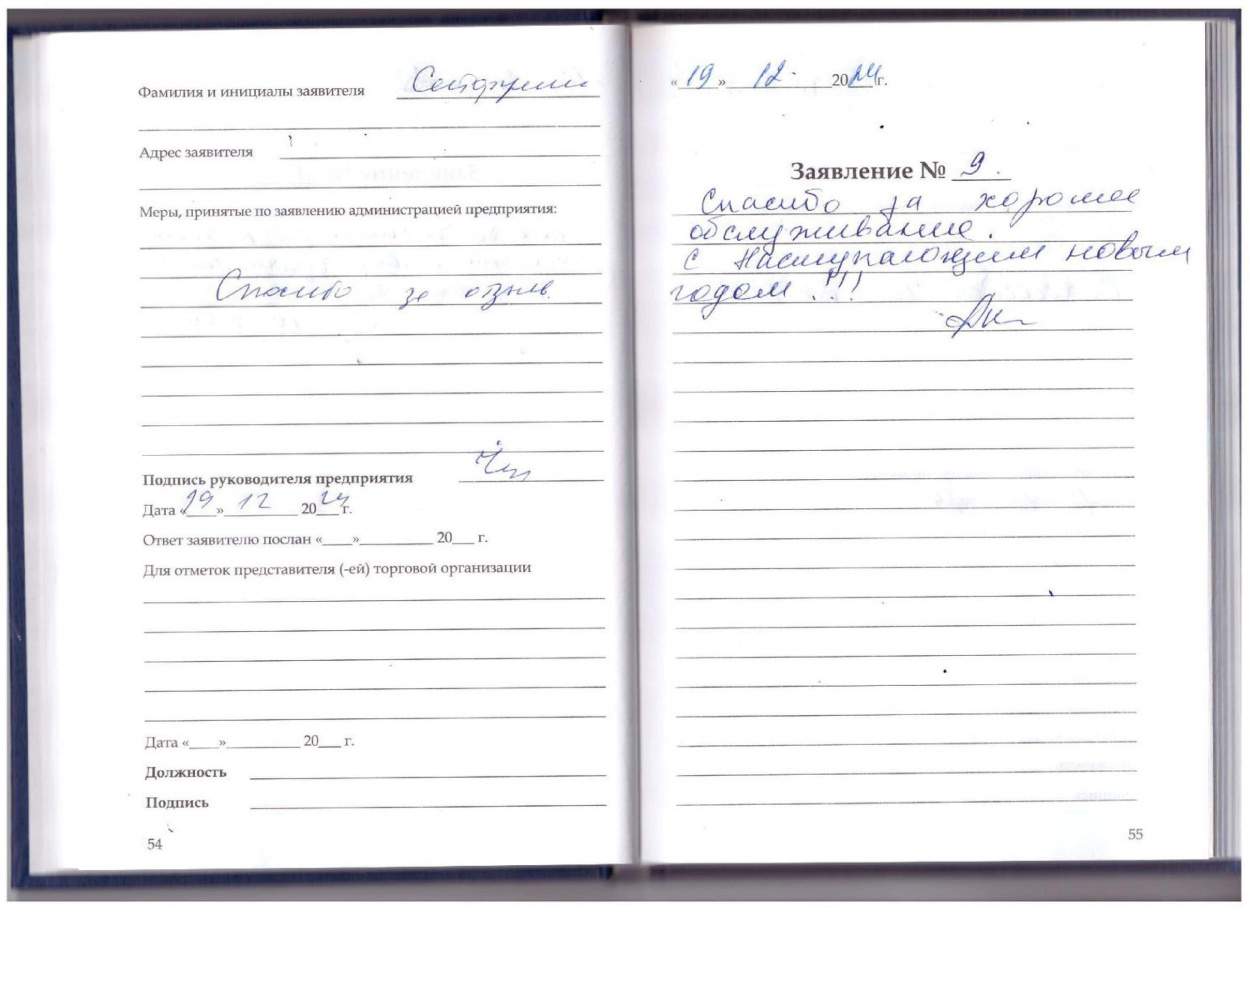 Фамилия и инициалы заявителя
Адрес заявителя
Меры, принятые по заявлению администрацией предприятия:
Спасибо за отзыв.
Подпись руководителя предприятия
Дата «19» 12 2024 г.
Ответ заявителю послан «____»__________ 20___ г.
Для отметок представителя (-ей) торговой организации
Дата «____»__________ 20___ г.
Должность
Подпись
54
«19» 12. 2024г.
Заявление № 9.
Спасибо за хорошее
обслуживание.
С Наступающим новым
годом!!!
55